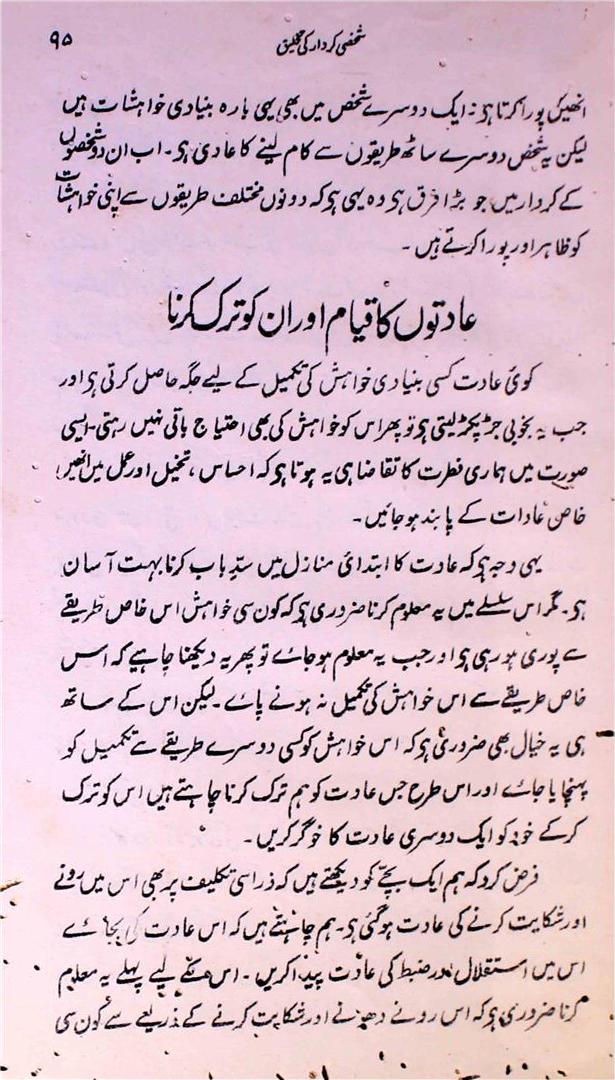 شخصی کردار کی تخلیق ۹۵
انھیں پورا کرتا ہو۔ ایک دوسرے شخص میں بھی یہی بارہ بنیادی خواہشات ہیں
لیکن یہ شخص دوسرے ساٹھ طریقوں سے کام لینے کا عادی ہو۔ اب ان دو شخصوں
کے کردار میں جو بڑا فرق ہو وہ یہی ہو کہ دونوں مختلف طریقوں سے اپنی خواہشات
کو ظاہر اور پورا کرتے ہیں۔
عادتوں کا قیام اور ان کو ترک کرنا
کوئی عادت کسی بنیادی خواہش کی تکمیل کے لیے جگہ حاصل کرتی ہو اور
جب یہ بخوبی جڑ پکڑ لیتی ہو تو پھر اس کو خواہش کی بھی احتیاج باقی نہیں رہتی۔ ایسی
صورت میں ہماری فطرت کا تقاضا ہی یہ ہوتا ہو کہ احساس، تخیل اور عمل میں انھیں
خاص عادات کے پابند ہو جائیں۔
یہی وجہ ہو کہ عادت کا ابتدائی منازل میں سدِّ باب کرنا بہت آسان
ہو۔ مگر اس سلسلے میں یہ معلوم کرنا ضروری ہو کہ کون سی خواہش اس خاص طریقے
سے پوری ہو رہی ہو اور جب یہ معلوم ہو جائے تو پھر یہ دیکھنا چاہیے کہ اس
خاص طریقے سے اس خواہش کی تکمیل نہ ہونے پائے۔ لیکن اس کے ساتھ
ہی یہ خیال بھی ضروری ہو کہ اس خواہش کو کسی دوسرے طریقے سے تکمیل کو
پہنچایا جائے اور اس طرح جس عادت کو ہم ترک کرنا چاہتے ہیں اس کو ترک
کرکے خود کو ایک دوسری عادت کا خوگر کریں۔
فرض کرو کہ ہم ایک بچّے کو دیکھتے ہیں کہ ذرا سی تکلیف پر بھی اس میں رونے
اور شکایت کرنے کی عادت ہو گئی ہو۔ ہم چاہتے ہیں کہ اس عادت کی بجائے
اس میں استقلال اور ضبط کی عادت پیدا کریں۔ اس کے لیے پہلے یہ معلوم
کرنا ضروری ہو کہ اس رونے دھونے اور شکایت کرنے کے ذریعے سے کون سی